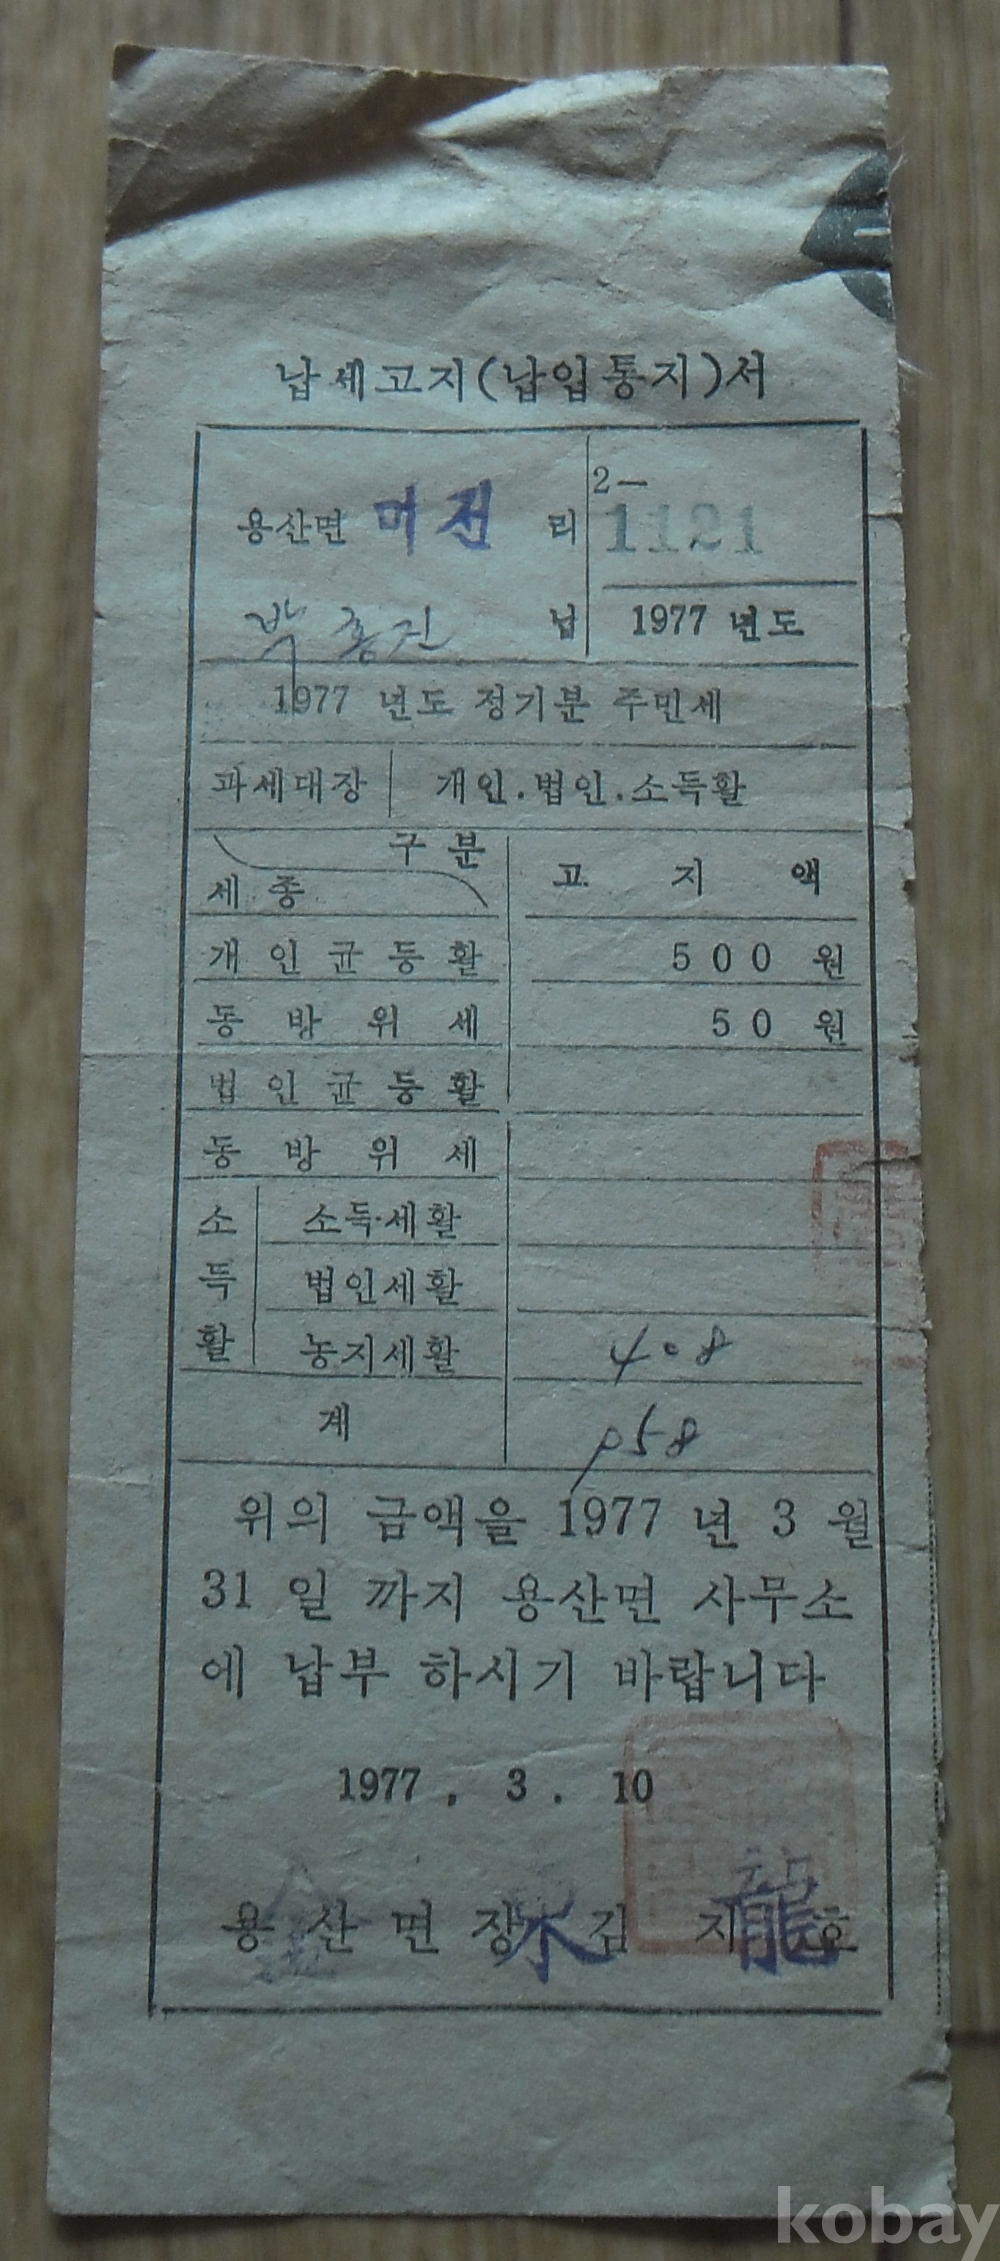 납세고지(납입통지)서
용산면 머전 리
2-
1121
박흥진 납
1977 년도
1977 년도 정기분 주민세
과세대장 개인.법인.소득할
구분
세종
고 지 액
개인균등할 500 원
동방위세 50 원
법인균등할
동방위세
소득할
소득세할
법인세할
농지세할 408
계 958
위의 금액을 1977 년 3 월
31 일 까지 용산면 사무소
에 납부 하시기 바랍니다
1977 . 3 . 10
용산면장 김 지 호
金 永 龍
kobay